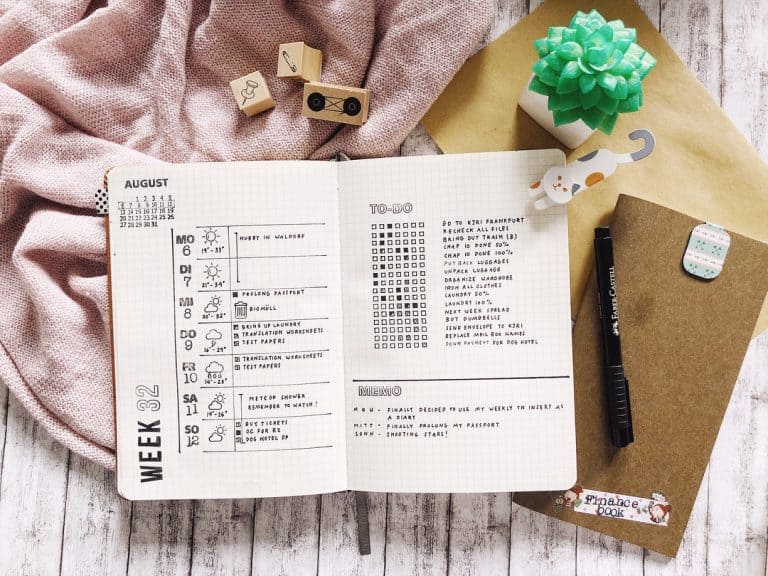 AUGUST
1 2 3 4 5
6 7 8 9 10 11 12
13 14 15 16 17 18 19
20 21 22 23 24 25 26
27 28 29 30 31
WEEK 32
MO
6
19°-33°
HUBBY IN WALDORF
DI
7
21°-34°
MI
8
20°-32°
PROLONG PASSPORT
BIOMÜLL
DO
9
16°-29°
BRING UP LAUNDRY
TRANSLATION WORKSHEETS
TEST PAPERS
FR
10
14°-23°
TRANSLATION WORKSHEETS
TEST PAPERS
SA
11
METEOR SHOWER
REMEMBER TO WATCH!
SO
12
BUY TICKETS
OC FOR R2
DOG HOTEL DP
TO-DO
GO TO KJRI FRANKFURT
RECHECK ALL FILES
BRING OUT TRASH (B)
CHAP 10 DONE 50%
CHAP 10 DONE 100%
PUT BACK LUGGAGES
UNPACK LUGGAGE
ORGANIZE WARDROBE
IRON ALL CLOTHES
LAUNDRY 50%
LAUNDRY 100%
NEXT WEEK SPREAD
BUY DUMBBELLS
SEND ENVELOPE TO KJRI
REPLACE MAIL BOX NAMES
DOWN PAYMENT FOR DOG HOTEL
MEMO
MON - FINALLY DECIDED TO USE MY WEEKLY TN INSERT AS
A DIARY
MITT - FINALLY PROLONG MY PASSPORT
SONN - SHOOTING STARS!
FABER-CASTELL
Finance
book